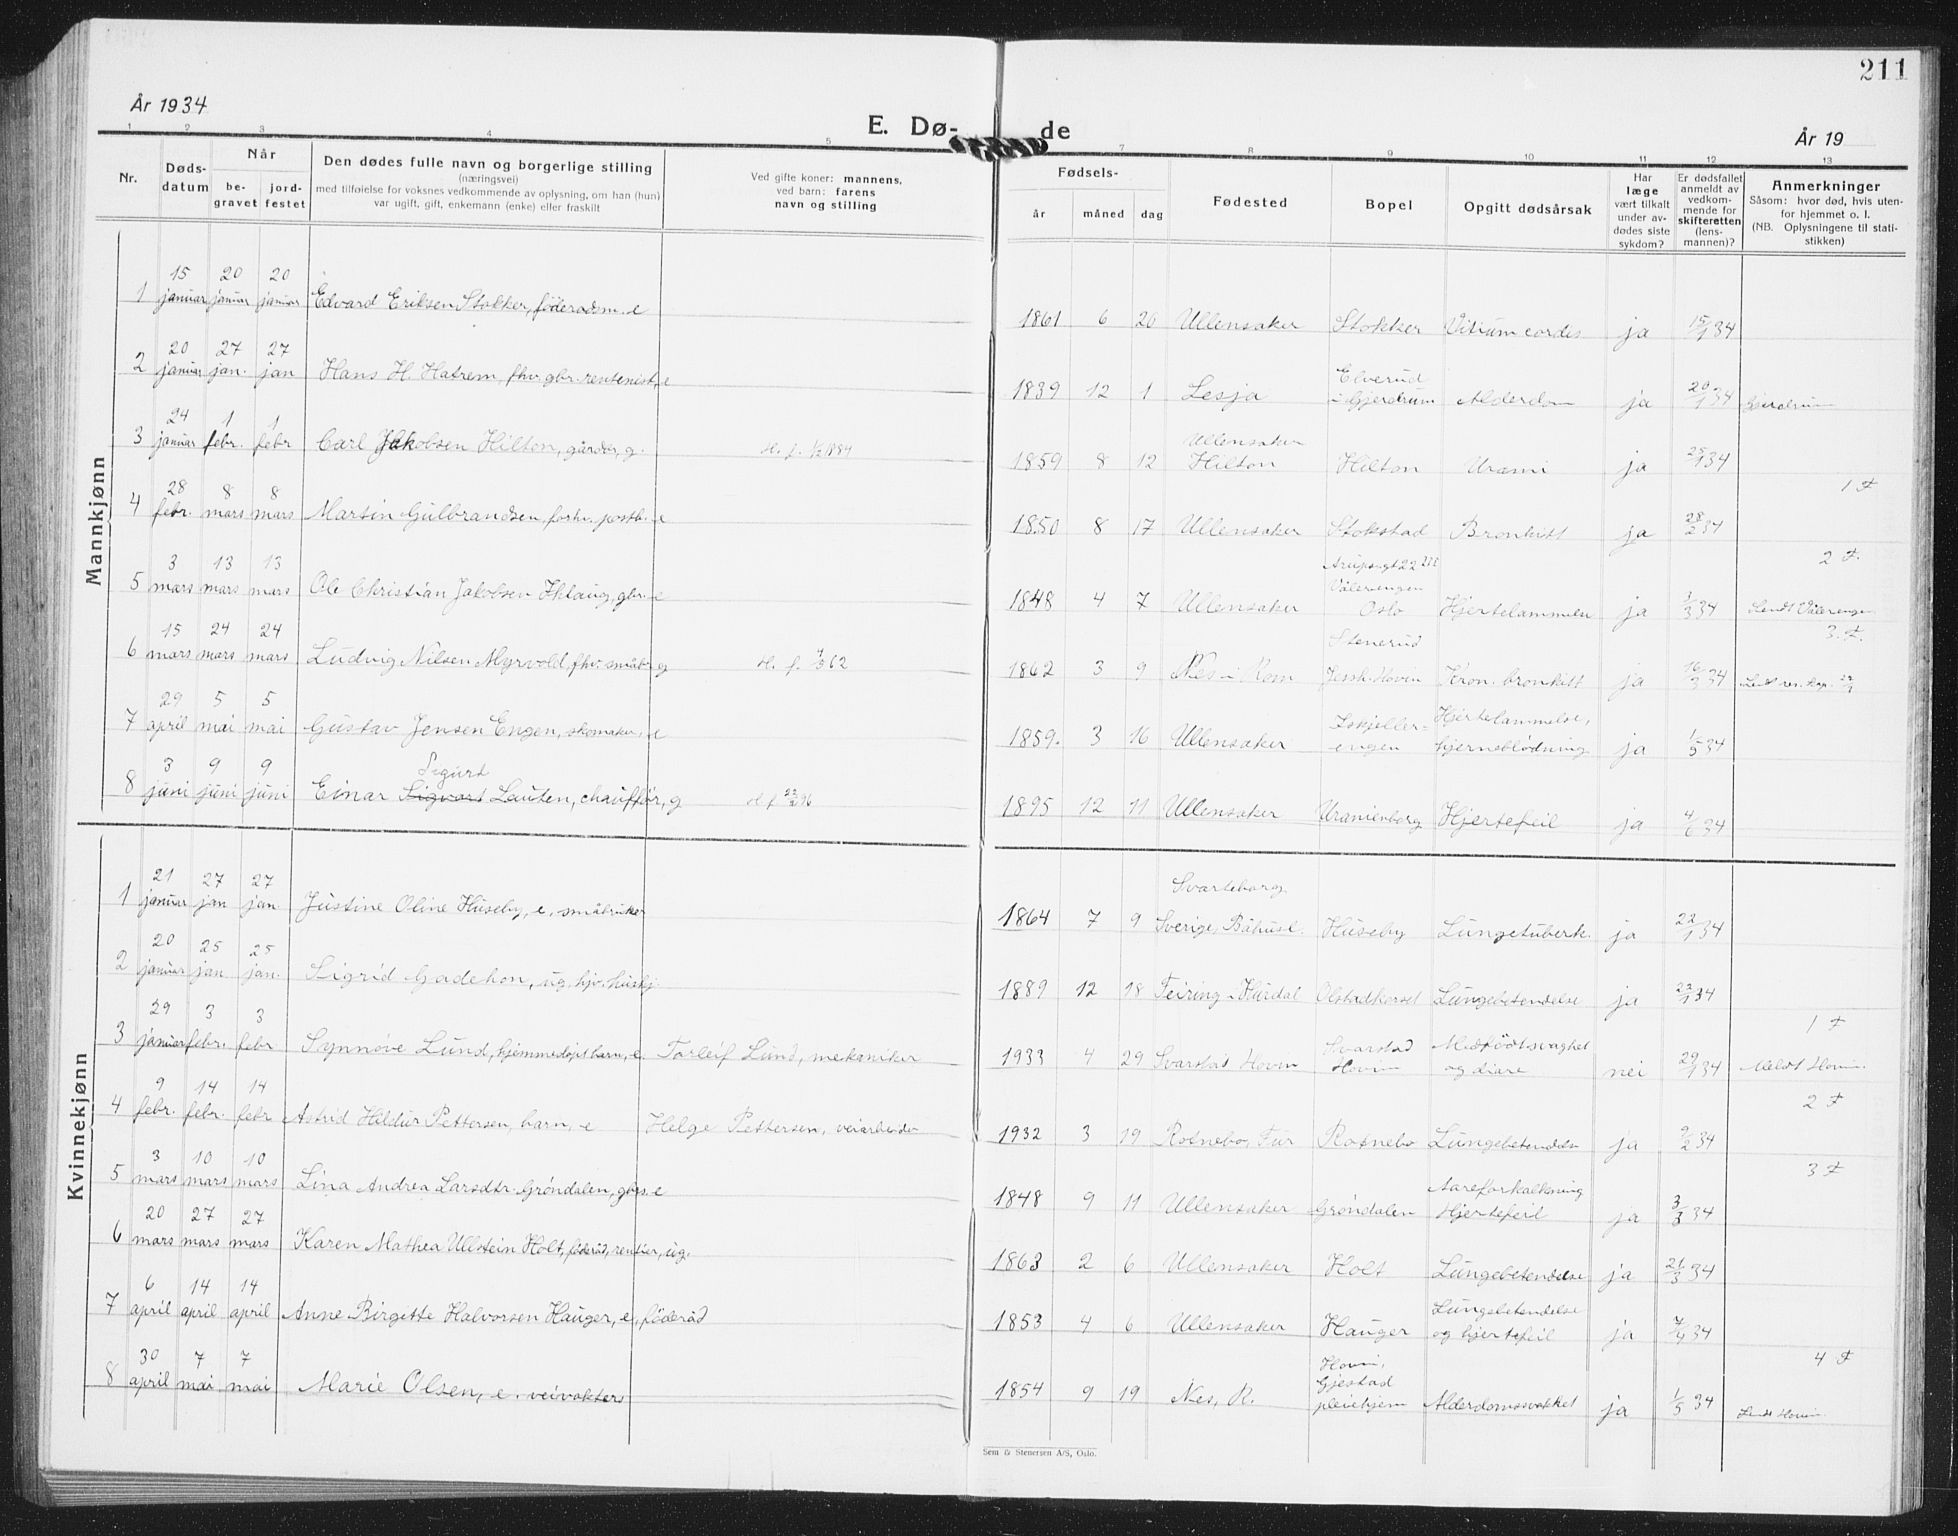 211
År 1934
E. Dø-
de
År 19
1 2 3 4 5 7 8 9 10 11 12 13
Nr.
Døds-
datum
Når
be-
gravet
jord-
festet
Den dødes fulle navn og borgerlige stilling
(næringsvei)
med tilføielse for voksnes vedkommende av oplysning, om han (hun)
var ugift, gift, enkemann (enke) eller fraskilt
Ved gifte koner: mannens,
ved barn: farens
navn og stilling
Fødsels-
år måned dag
Fødested
Bopel
Opgitt dødsårsak
Har
læge
vært tilkalt
under av-
dødes siste
sykdom?
Er dødsfallet
anmeldt av
vedkom-
mende for
skifteretten
(lens-
mannen)?
Anmerkninger
Såsom: hvor død, hvis uten-
for hjemmet o. l.
(NB. Oplysningene til stati-
stikken)
Mannkjønn
15 20 20
1 januar januar januar Edvard Eriksen Stokker, føderadsm. e
1861 6 20 Ullensaker Stokker Vitium cordis ja 15/1 34
20 27 27
2 januar jan. jan Hans H. Hatrem, fhv. gbr. rentenist, e
Elverud
1839 12 1 Lesja i Gjerdrum Alderdom ja 20/1 34 Gjerdrum
24 1 1
3 januar febr. febr Carl Jakobsen Hilton, gårdbr, g. H. f. 1/2 1884
Ullensaker
1859 8 12 Hilton Hilton Uræmi ja 25/1 34
1 F
28 8 8
4 febr. mars mars Martin Gulbrandsen, forhv. postb. e
1850 8 17 Ullensaker Stokstad Bronkitt ja 28/2 34
2 F.
3 13 13
5 mars mars mars Ole Christian Jakobsen Iklaug, gbr. e
Arupsgt 22
Vålerengen
1848 4 7 Ullensaker Oslo Hjertelammelse ja 3/3 34 Sendt Vålerengen
3. F.
15 24 24
6 mars mars mars Ludvig Nilsen Myrvold, fhv. småbr. g H. f. 62
Stenerud
1862 3 9 Nes i Rom Jessh. Hovin Kron. bronkitt ja 16/3 34
29 5 5
7 april mai mai Gustav Jensen Engen, skomaker, e
Iskjeller- Hjertelammelse,
1859. 3 16 Ullensaker engen hjerneblødning ja 1/5 34
3 9 9
Sigurd
8 juni juni juni Einar Sigvart Lauten, chauffør, g H. f 96
1895 12 11 Ullensaker Uranienborg Hjertefeil ja 4/6 34
Kvinnekjønn
21 27 27
1 januar jan jan. Justine Oline Huseby, e. småbruker
Svarteborg
1864 7 9 Sverige, Båhusl. Huseby Lungetuberk. ja 22/1 34
20 25 25
2 januar jan jan. Sigrid Gadehon, ug. hjv. hushj.
1889 12 18 Feiring i Hurdal Olstadkorset Lungebetendelse ja 22/1 34
1 F
29 3 3
3 januar febr. febr Synnøve Lund, hjemmedøpt barn, e. Torleif Lund, mekaniker
Svarstad Medfødt svaghet
1933 4 29 Svarstad Hovin Hovin og diare nei 29/1 34 Meldt Hovin.
2 F
9 14 14
4 febr. febr. febr Astrid Hildur Pettersen, barn, e Helge Pettersen, veiarbeider
1932 3 19 Rotnebo, Fur Rotnebo Lungebetendelse ja 9/2 34
3 F
3 10 10
5 mars mars mars Lina Andrea Larsdtr. Grøndalen, gbrs. e
Aareforkalkning
1848 9 11 Ullensaker Grøndalen Hjertefeil ja 3/3 34
20 27 27
6 mars mars mars Karen Mathea Ullstein Holt, føderåd, rentier, ug.
1863 2 6 Ullensaker Holt Lungebetendelse ja 21/3 34
6 14 14
7 april april april Anne Birgitte Halvorsen Hauger, e, føderåd
Lungebetendelse
1853 4 6 Ullensaker Hauger og hjertefeil ja 7/4 34
4 F
30 7 7
8 april mai mai Marie Olsen, e. veivokters
Hovin,
Gjestad
1854 9 19 Nes, R. pleiehjem Alderdomssvakhet ja 1/5 34 Sendt Hovin.
Sem & Stenersen A/S, Oslo.